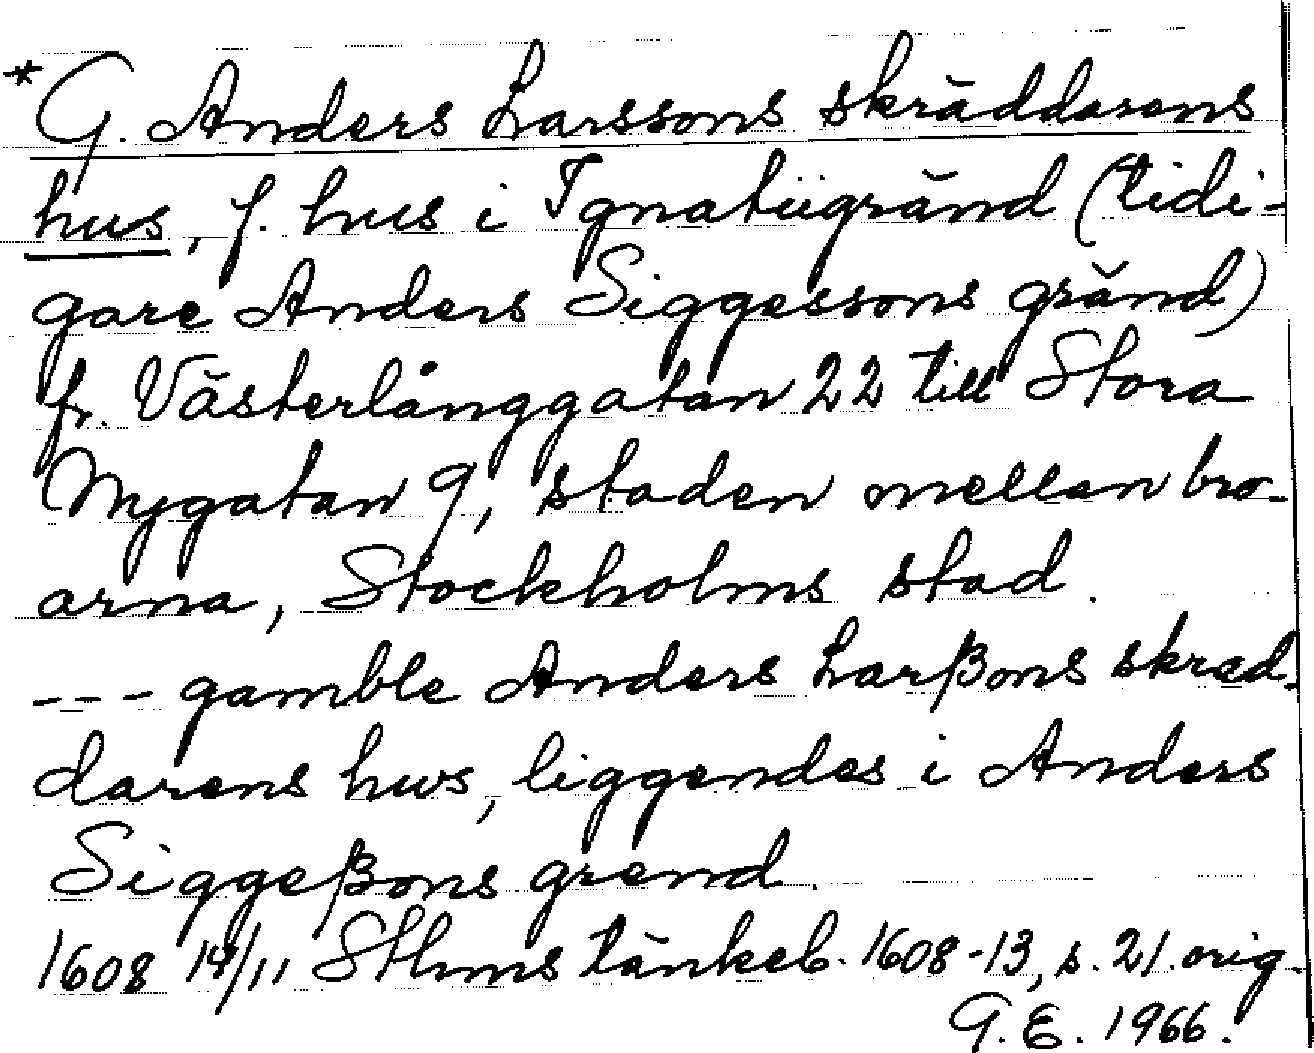 *G. Anders Larssons skräddarens
hus, f. hus i Ignatiigränd (tidi-
gare Anders Siggessons gränd)
fr. Västerlånggatan 22 till Stora
Nygatan 9, staden mellan bro-
arna, Stockholms stad.
--- gamble Anders Larßons skred-
darens hws, liggendes i Anders
Siggeßons grend.
1608 14/11 Sthms tänkeb. 1608-13, s. 21. orig.
G.E. 1966.